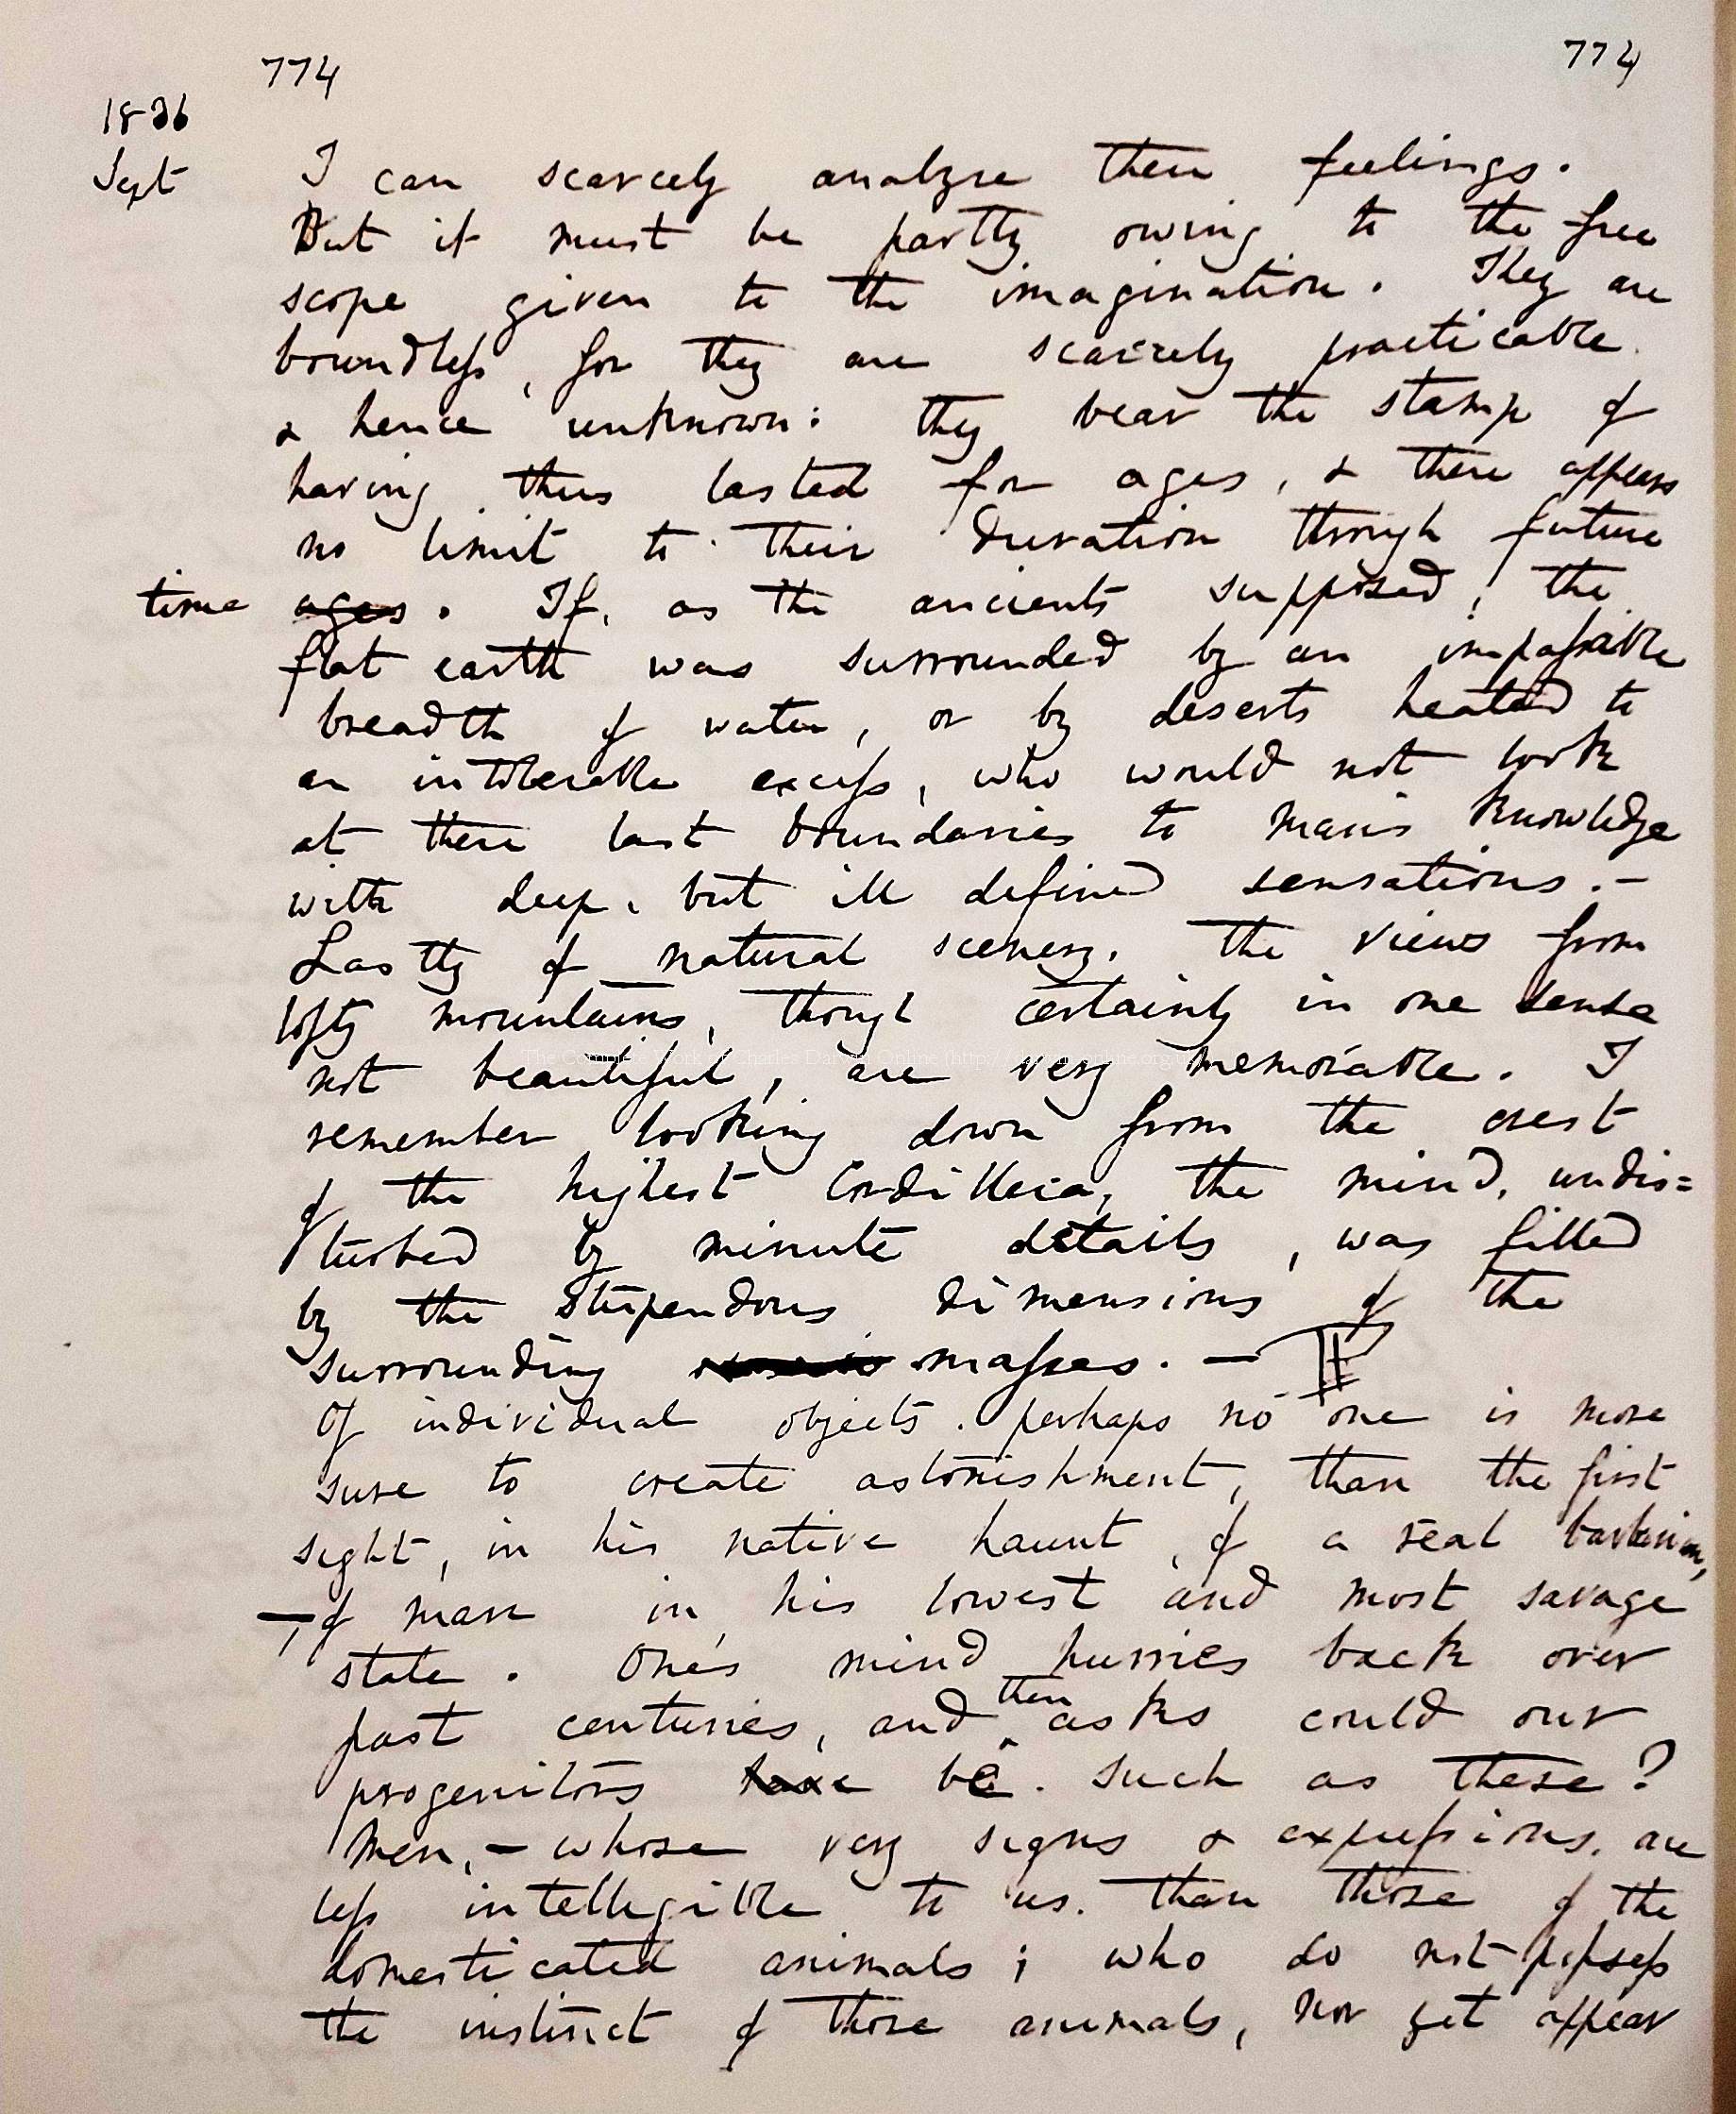 774 774
1836
Sept I can scarcely analyse these feelings.
But it must be partly owing to the free
scope given to the imagination. They are
boundless, for they are scarcely practicable
& hence unknown: they bear the stamp of
having thus lasted for ages, & there appears
no limit to their duration through future
time ages. If, as the ancients supposed, the
flat earth was surrounded by an impassable
breadth of water, or by deserts heated to
an intolerable excess, who would not look
at these last boundaries to man's knowledge
with deep, but ill defined sensations. —
Lastly of natural scenery, the views from
lofty mountains, though certainly in one sense
not beautiful, are very memorable. I
remember looking down from the crest
of the highest Cordillera, the mind, undis=
turbed by minute details, was filled
by the stupendous dimensions of the
surrounding masses. —
Of individual objects, perhaps no one is more
sure to create astonishment, than the first
sight, in his native haunt, of a real barbarian,
—, of man in his lowest and most savage
state. One's mind hurries back over
past centuries, and then asks could our
progenitors have be such as these?
Men, — whose very signs & expressions, are
less intellegible to us, than those of the
domesticated animals; who do not possess
the instinct of those animals, nor yet appear